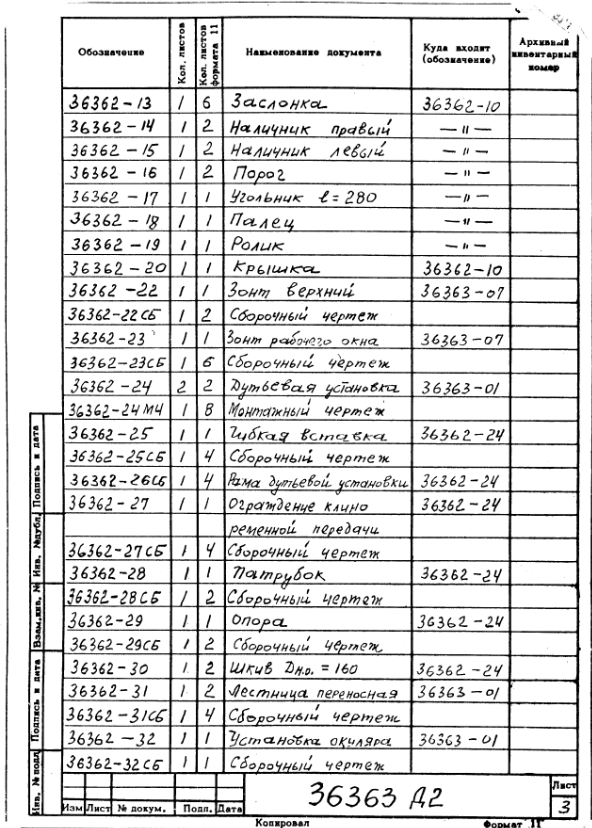 Обозначение Кол. листов Кол. листов формата 11 Наименование документа Куда входит (обозначение) Архивный инвентарный номер
36362-13 1 6 Заслонка 36362-10
36362-14 1 2 Наличник правый — " —
36362-15 1 2 Наличник левый — " —
36362-16 1 2 Порог — " —
36362-17 1 1 Угольник ℓ=280 — " —
36362-18 1 1 Палец — " —
36362-19 1 1 Ролик — " —
36362-20 1 1 Крышка 36362-10
36362-22 1 1 Зонт верхний 36363-07
36362-22СБ 1 2 Сборочный чертеж
36362-23 1 1 Зонт рабочего окна 36363-07
36362-23СБ 1 6 Сборочный чертеж
36362-24 2 2 Дутьевая установка 36363-01
36362-24МЧ 1 8 Монтажный чертеж
36362-25 1 1 Гибкая вставка 36362-24
36362-25СБ 1 4 Сборочный чертеж
36362-26СБ 1 4 Рама дутьевой установки 36362-24
36362-27 1 1 Ограждение клино 36362-24
ременной передачи
36362-27СБ 1 4 Сборочный чертеж
36362-28 1 1 Патрубок 36362-24
36362-28СБ 1 2 Сборочный чертеж
36362-29 1 1 Опора 36362-24
36362-29СБ 1 2 Сборочный чертеж
36362-30 1 2 Шкив Dн.о. = 160 36362-24
36362-31 1 2 Лестница переносная 36363-01
36362-31СБ 1 4 Сборочный чертеж
36362-32 1 1 Установка окуляра 36363-01
36362-32СБ 1 1 Сборочный чертеж
Инв. № подл. Подпись и дата Взам.инв. № Инв. №дубл. Подпись и дата
Изм Лист № докум. Подп. Дата
36363 Д2
Лист
3
Копировал Формат 11